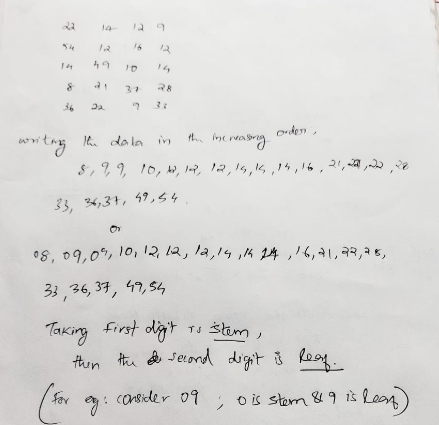 22 14 12 9
54 12 16 12
14 49 10 14
8 21 37 28
36 22 9 33
writing the data in the increasing order,
8, 9, 9, 10, 12, 12, 12, 14, 14, 14, 16, 21, 22, 22, 28
33, 36, 37, 49, 54.
Or
08, 09, 09, 10, 12, 12, 12, 14, 14 14, 16, 21, 22, 28,
33, 36, 37, 49, 54
Taking first digit is stem,
then the second digit is leaf.
(for eg: consider 09 ; 0 is stem & 9 is leaf)